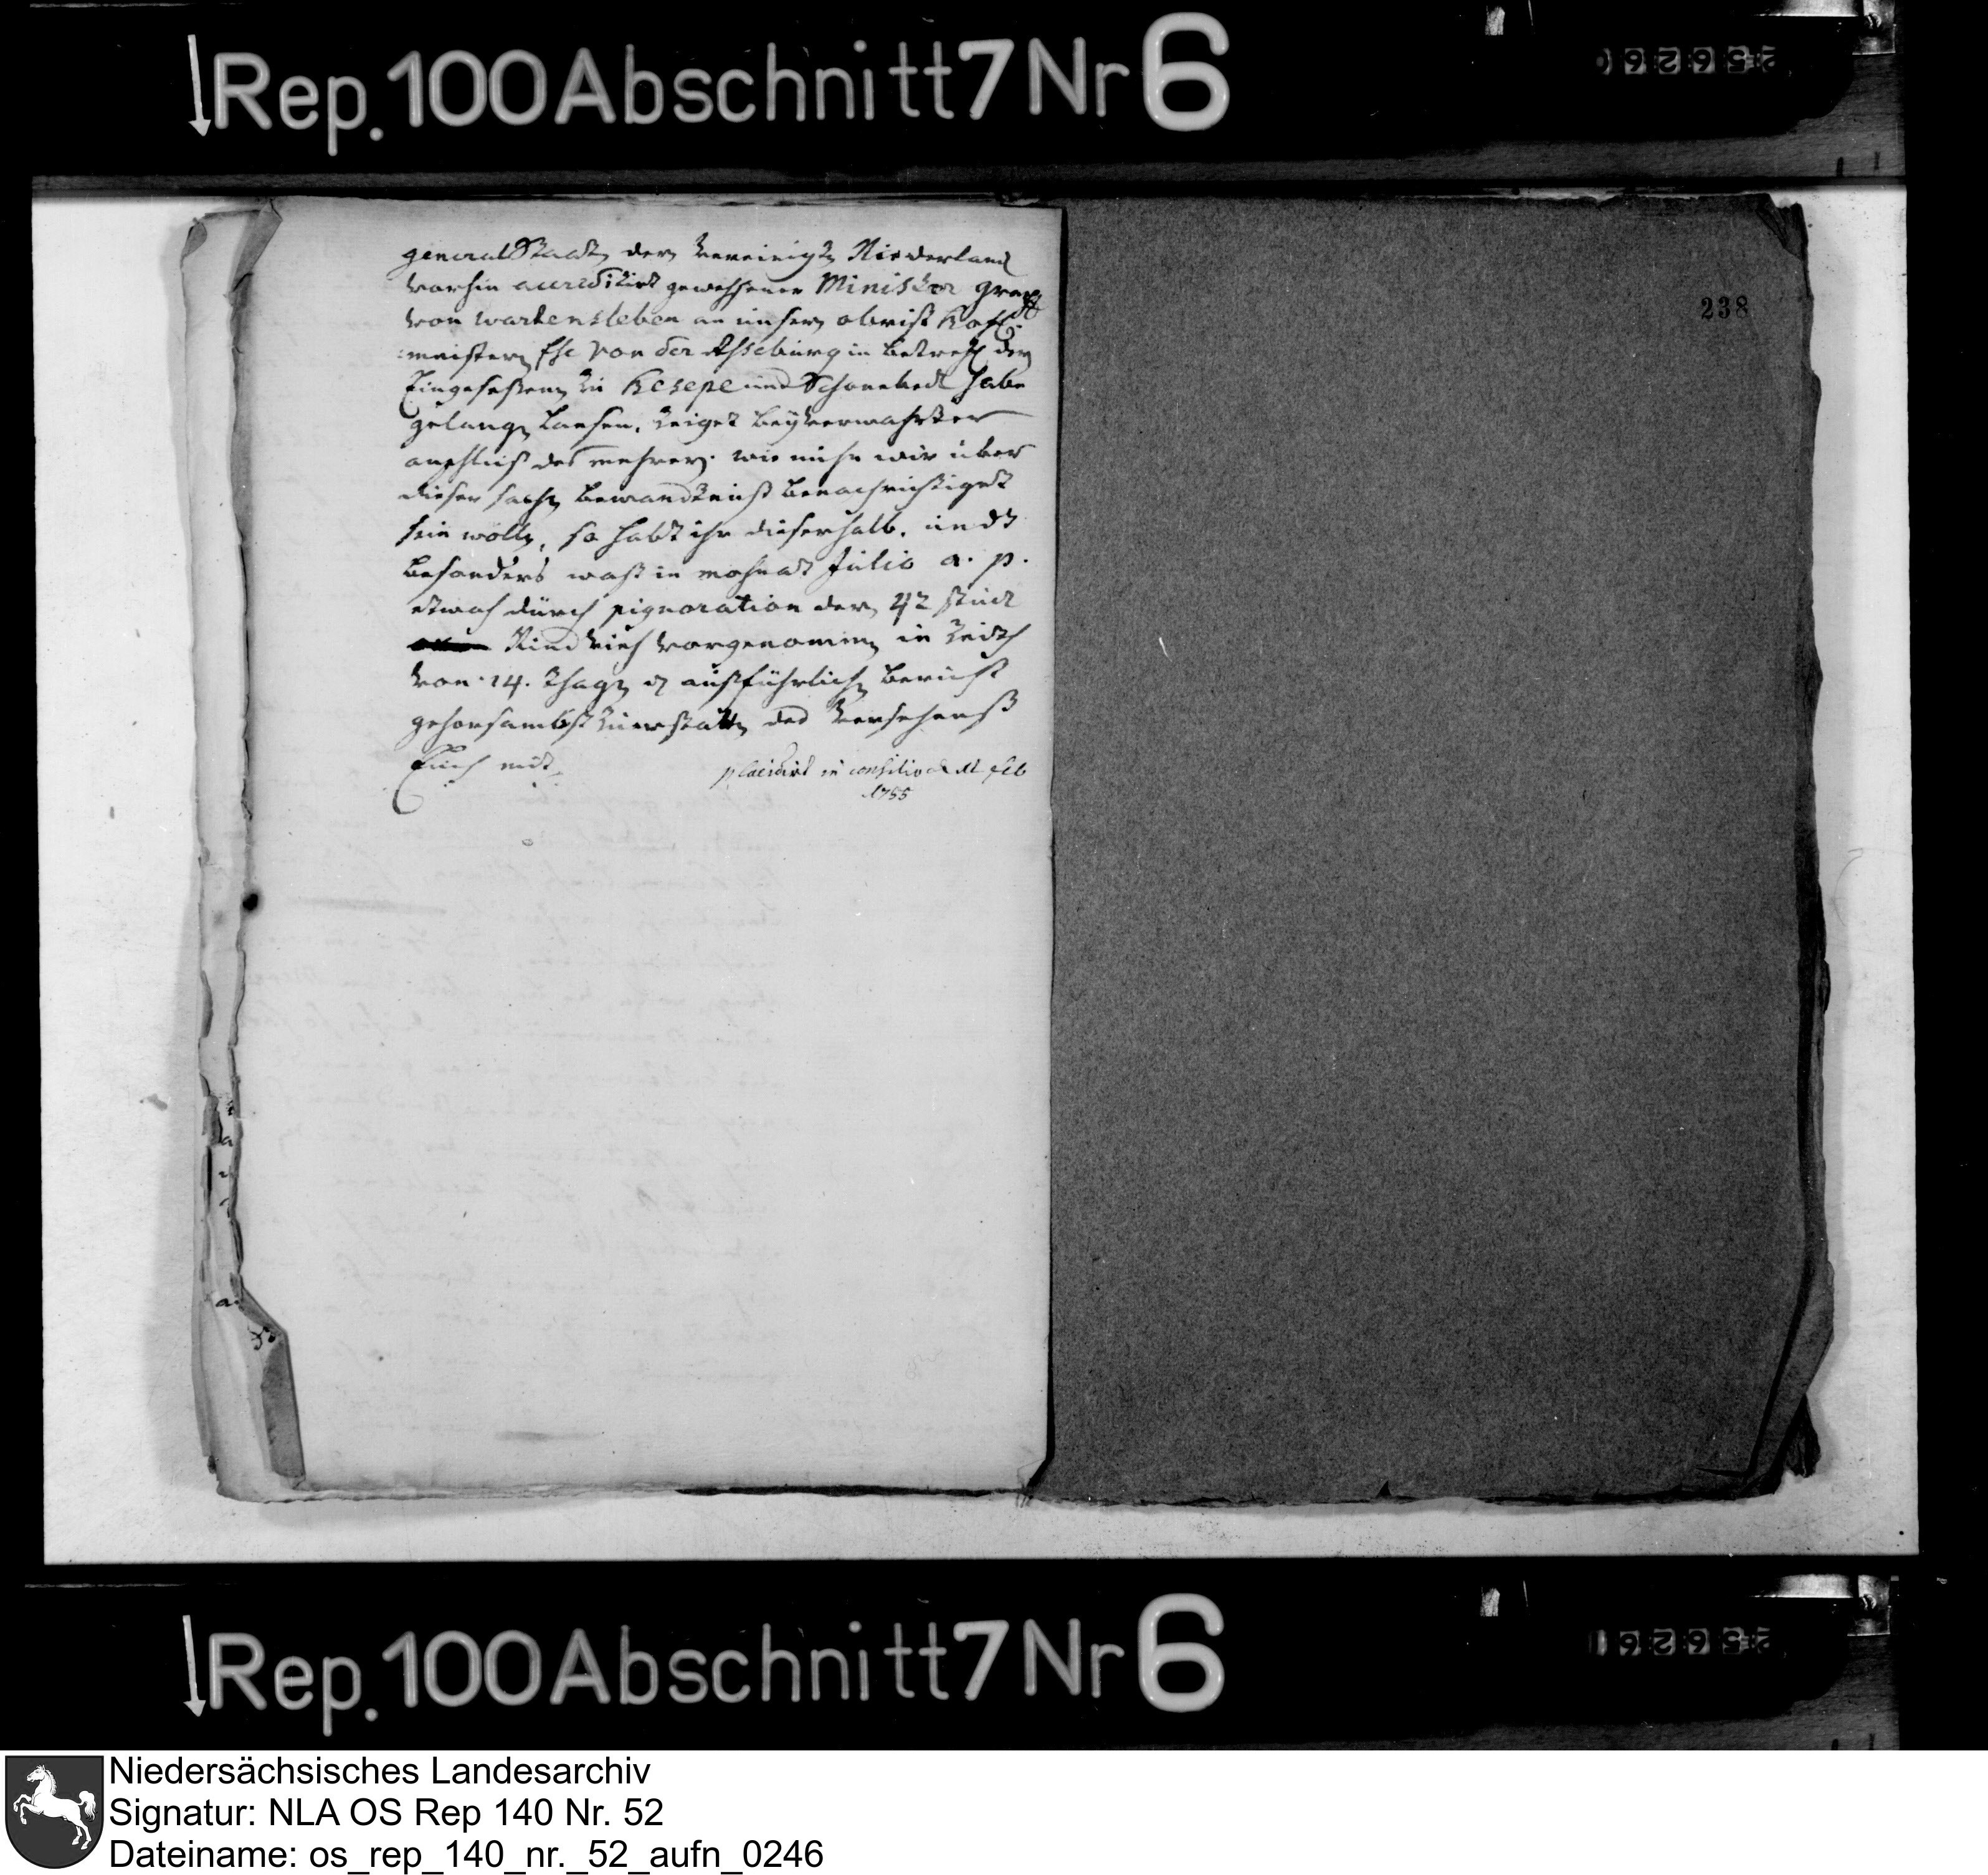 Rep. 100 Abschnitt 7 Nr 6
238
general Staaten der Vereinigten Niederland
vorhin accreditirt gewesener Minister graff
von Wartensleben an unsern obrist Hoff-
meistern von der Asseburg in betreff der
Eingesessenen zu Hesepe und Schonebeck habe
gelangen lassen, zeiget beyverwahrter
anschluß des mehrern. wie nuhn wir über
dieser sachen bewandtnuß benachrichtiget
sein wollen, so habt ihr dieserhalb, undt
besonders waß in mohnat Julio a. p.
etwah durch pignoration deren 42 stück
Rindvieh vorgenommen, in Zeith
von 14. Thagen ausführlichen bericht
gehorsambst zu erstatten, des Versehenß
Euch mit
placidirt in consilio d. 12 feb
1755
Rep. 100 Abschnitt 7 Nr 6
Niedersächsisches Landesarchiv
Signatur: NLA OS Rep 140 Nr. 52
Dateiname: os_rep_140_nr._52_aufn_0246